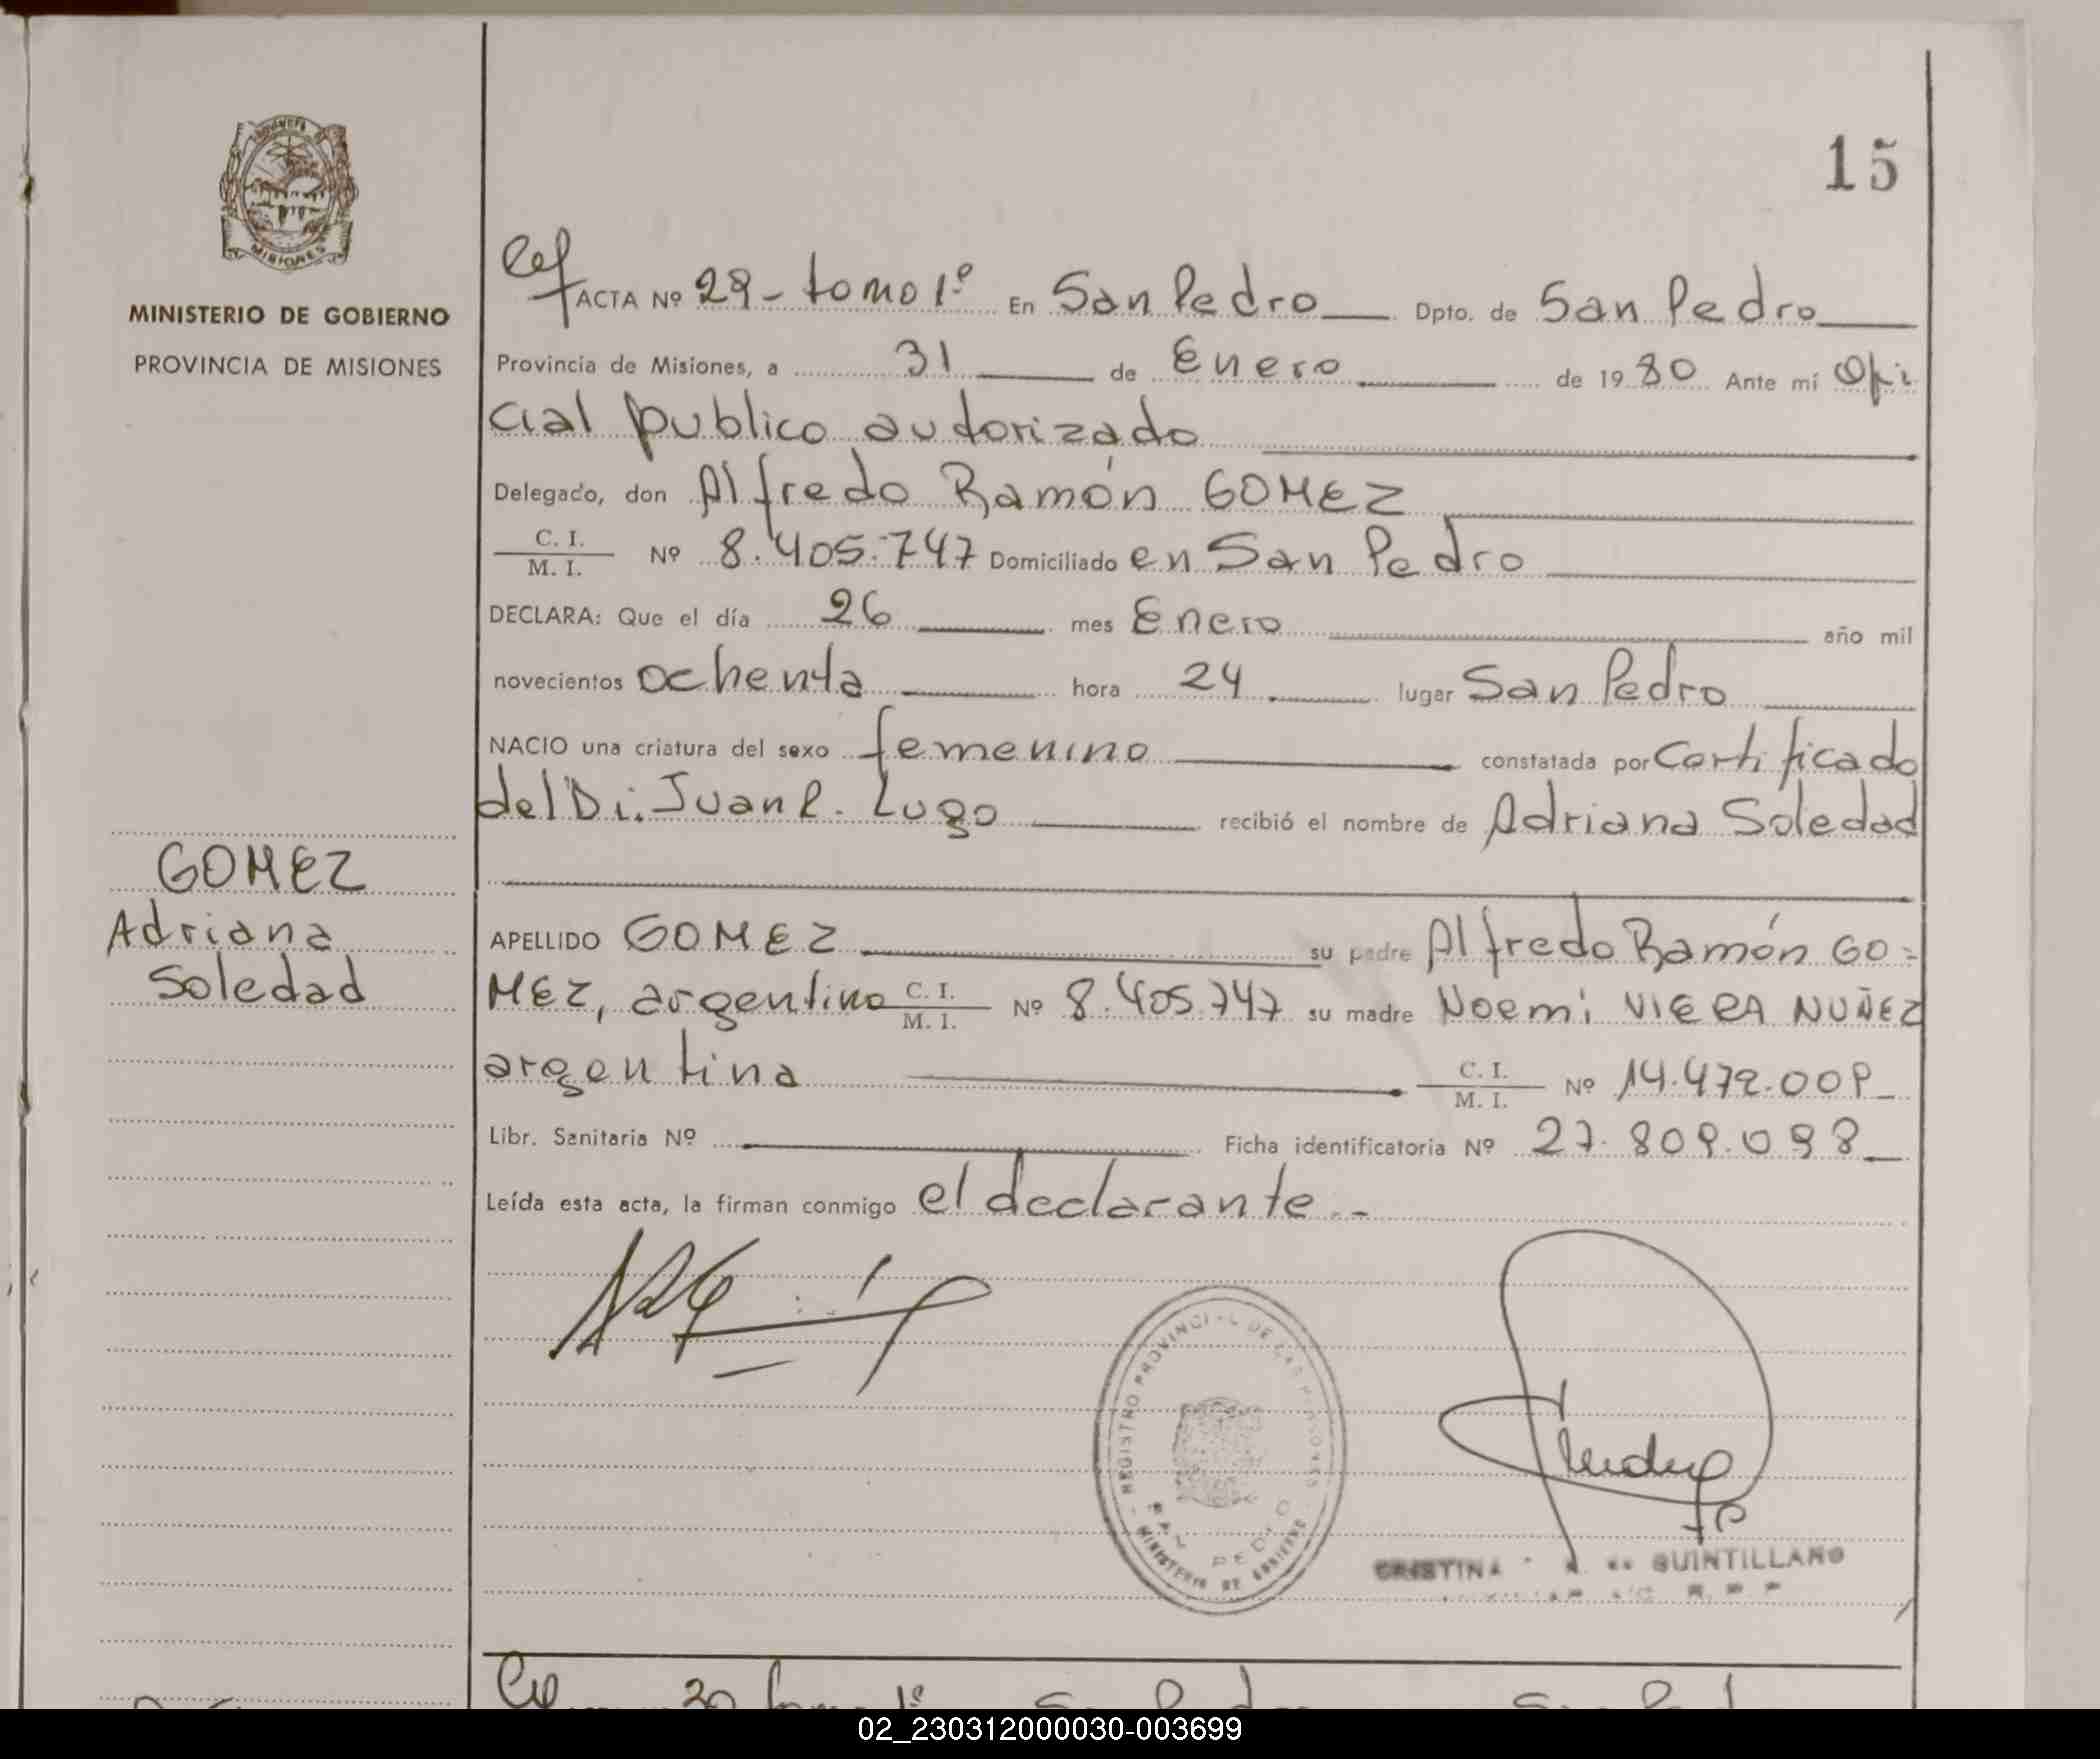 MISIONES
MINISTERIO DE GOBIERNO
PROVINCIA DE MISIONES
15
ACTA Nº 29 - tomo 1º En San Pedro Dpto. de San Pedro
Provincia de Misiones, a 31 de Enero de 1980 Ante mí Ofi
cial publico autorizado
Delegado, don Alfredo Ramón GOMEZ
C. I.
M. I. Nº 8.405.747 Domiciliado en San Pedro
DECLARA: Que el día 26 mes Enero año mil
novecientos ochenta hora 24 lugar San Pedro
NACIO una criatura del sexo femenino constatada por Certificado
del Dr. Juan R. Lugo recibió el nombre de Adriana Soledad
GOMEZ
Adriana
Soledad
APELLIDO GOMEZ su padre Alfredo Ramón GO=
MEZ, argentino C. I.
M. I. Nº 8.405.747 su madre Noemi VIERA NUÑEZ
argentina C. I.
M. I. Nº 14.472.009
Libr. Sanitaria Nº Ficha identificatoria Nº 27.809.098
Leída esta acta, la firman conmigo el declarante.-
REGISTRO PROVINCIAL DE LAS PERSONAS
SAN PEDRO
MINISTERIO DE GOBIERNO
CRISTINA QUINTILLANO
02_230312000030-003699